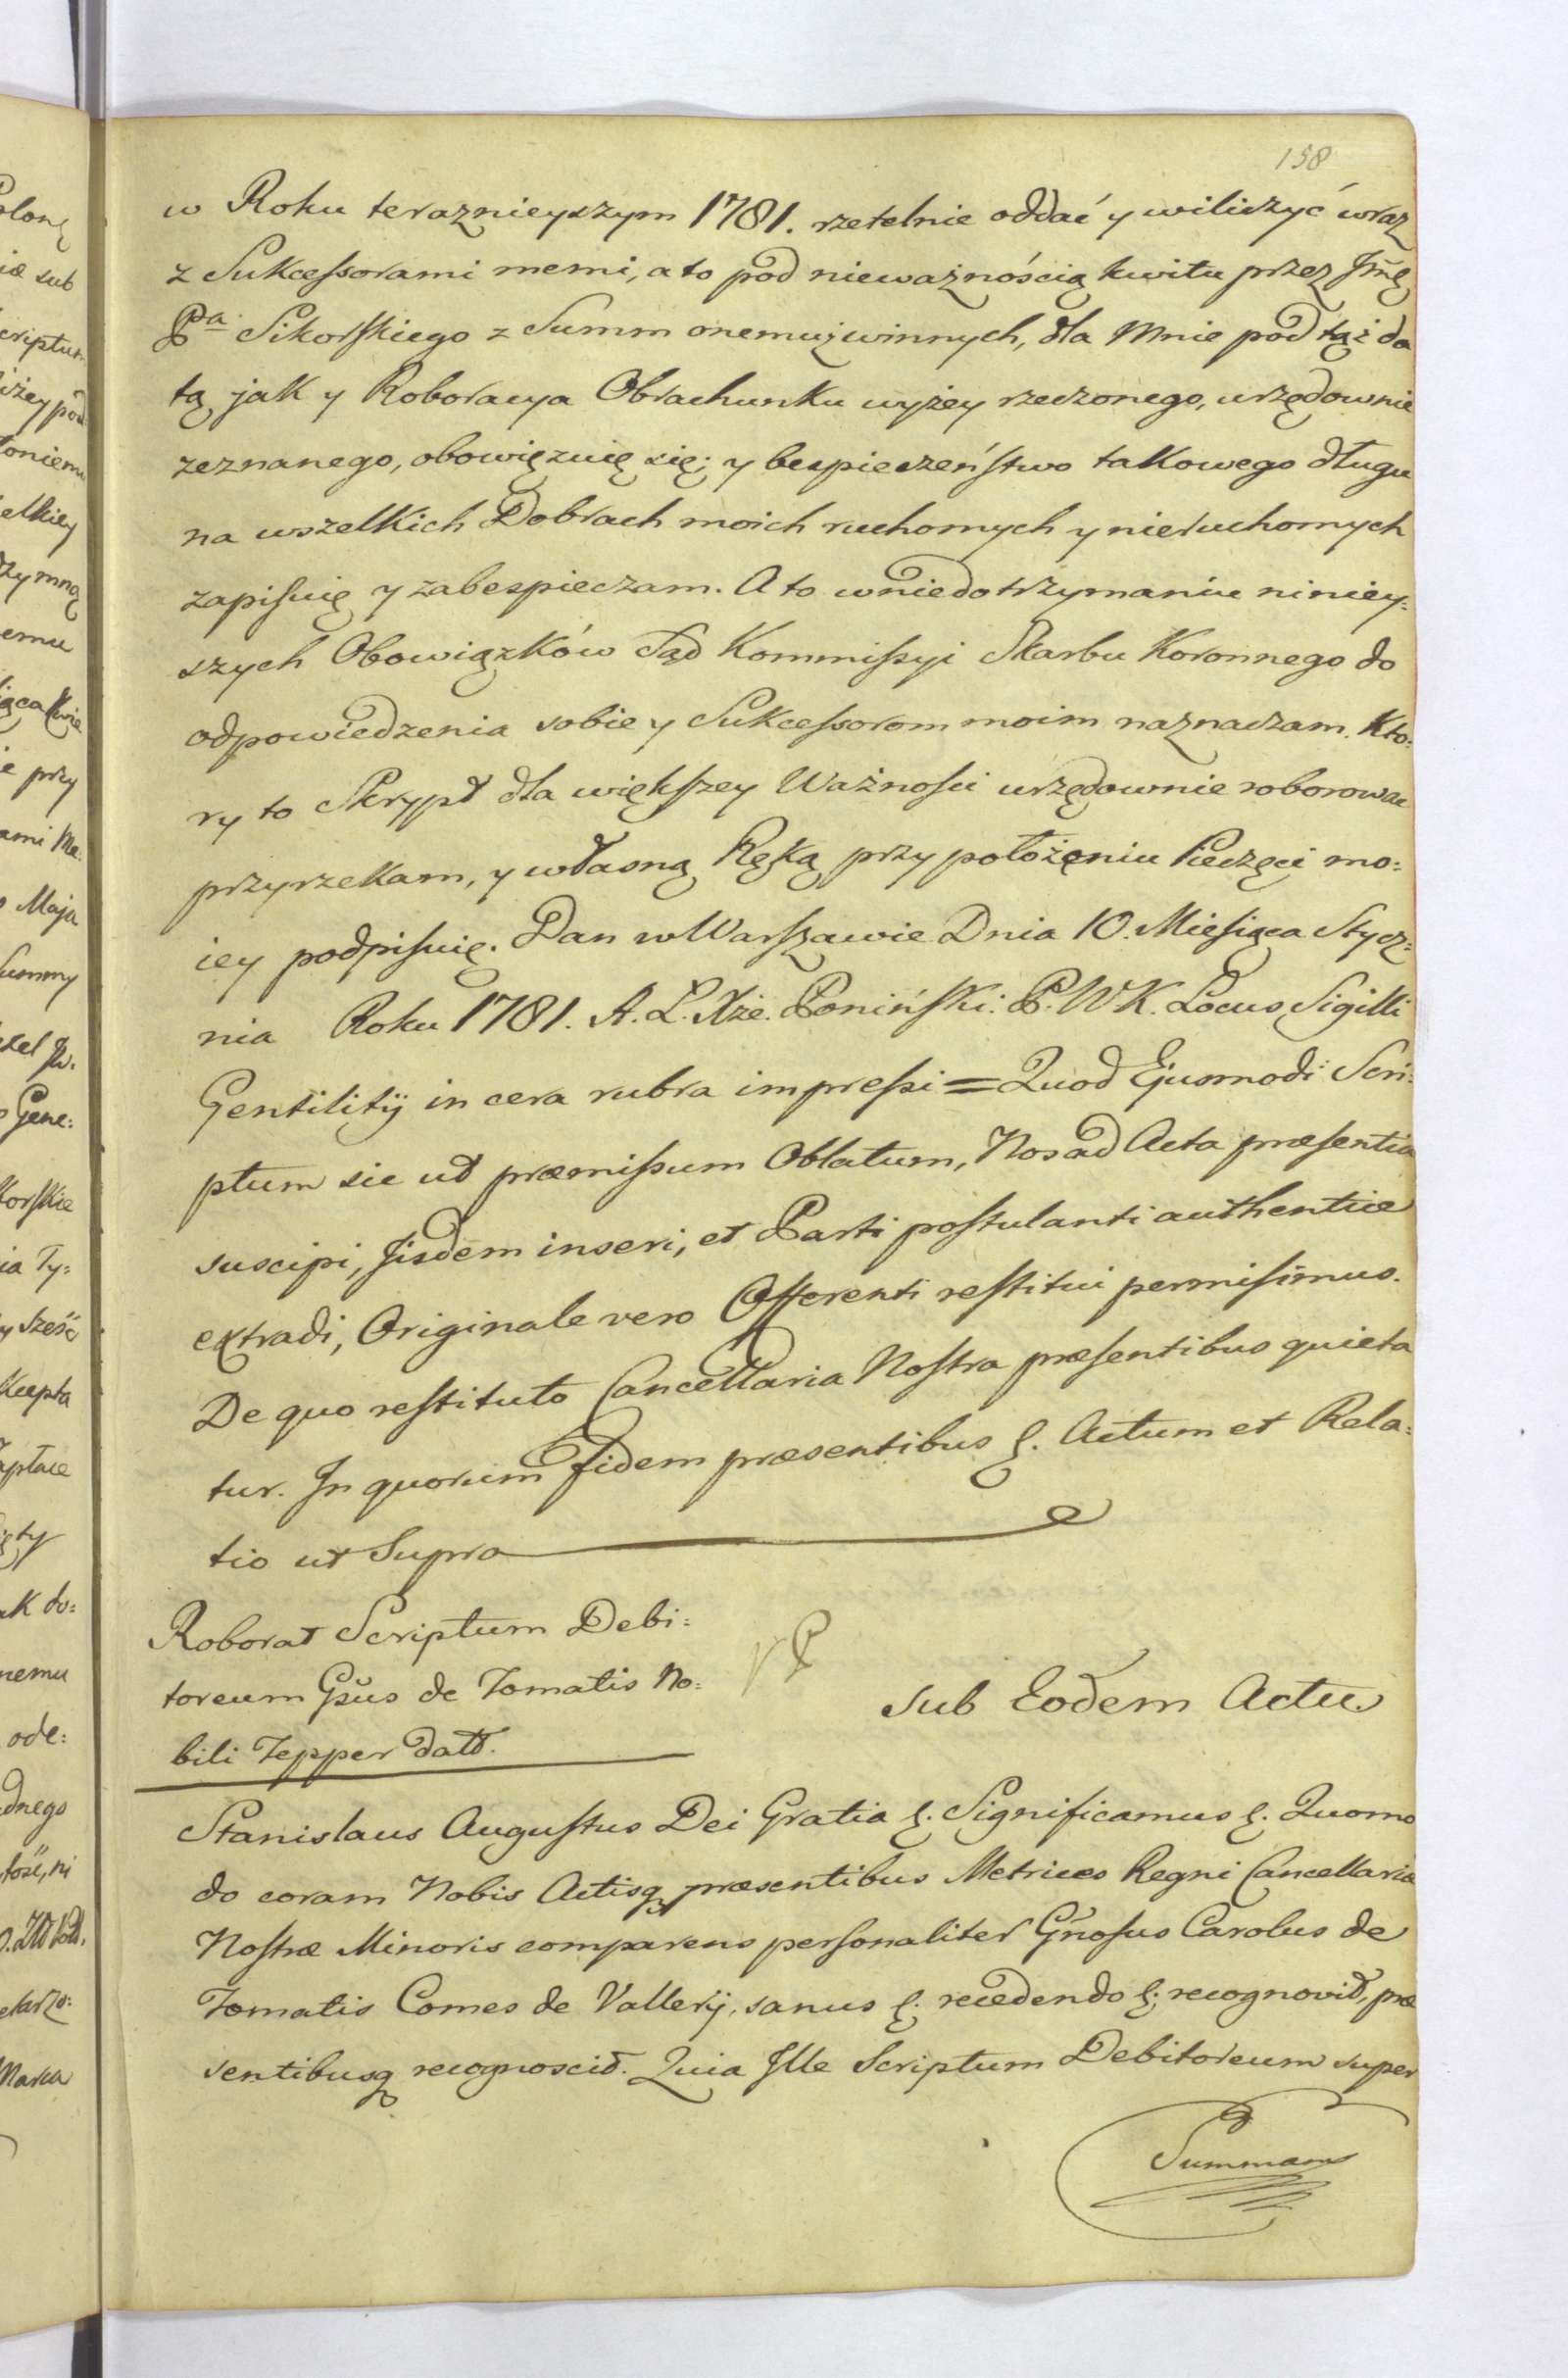 158
w Roku teraznieyszym 1781. rzetelnie oddać y wiliczyć wraz
z Sukcessorami memi, a to pod nieważnością kwitu przez Jmę
Pa Sikorskiego z Summ onemuż winnych, dla Mnie pod tąż da
tą jak y Roboracya Obrachunku wyżey rzeczonego, urzędownie
zeznanego, obowięzuię się; y bespieczeństwo takowego długu
na wszelkich Dobrach moich ruchomych y nieruchomych
zapisuię y zabespieczam. A to w niedotrzymaniu niniey:
szych Obowiązków Sąd Kommissyi Skarbu Koronnego do
odpowiedzenia sobie y Sukcessorom moim naznaczam. Kto:
ry to Skrypt dla większey Ważności urzędownie roborować
przyrzekam, y własną Ręką przy położeniu Pieczęci mo:
iey podpisuię. Dan w Warszawie Dnia 10. Miesiąca Stycz:
nia Roku 1781. A. L. Xże. Poniński. P. W K. Locus Sigilli
Gentilitÿ in cera rubra impressi = Quod Ejusmodi Scri:
ptum sic ut præmissum Oblatum, Nos ad Acta præsentia
suscipi, Jisdem inseri, et Parti postulanti authentice
extradi, Originale vero Offerenti restitui permisimus.
De quo restituto Cancellaria Nostra præsentibus quieta
tur. In quorum fidem præsentibus &. Actum et Rela:
tio ut Supra
Roborat Scriptum Debi:
toreum Gsus de Tomatis No:
bili Tepper datt.
Sub Eodem Actu
Stanislaus Augustus Dei Gratia &. Significamus &. Quomo
do coram Nobis Actisq præsentibus Metrices Regni Cancellariæ
Nostræ Minoris comparens personaliter Gnosus Carolus de
Tomatis Comes de Vallerÿ, sanus &. recedendo &. recognovit, præ
sentibusq recognoscit. Quia Ille Scriptum Debitoreum super
Summam